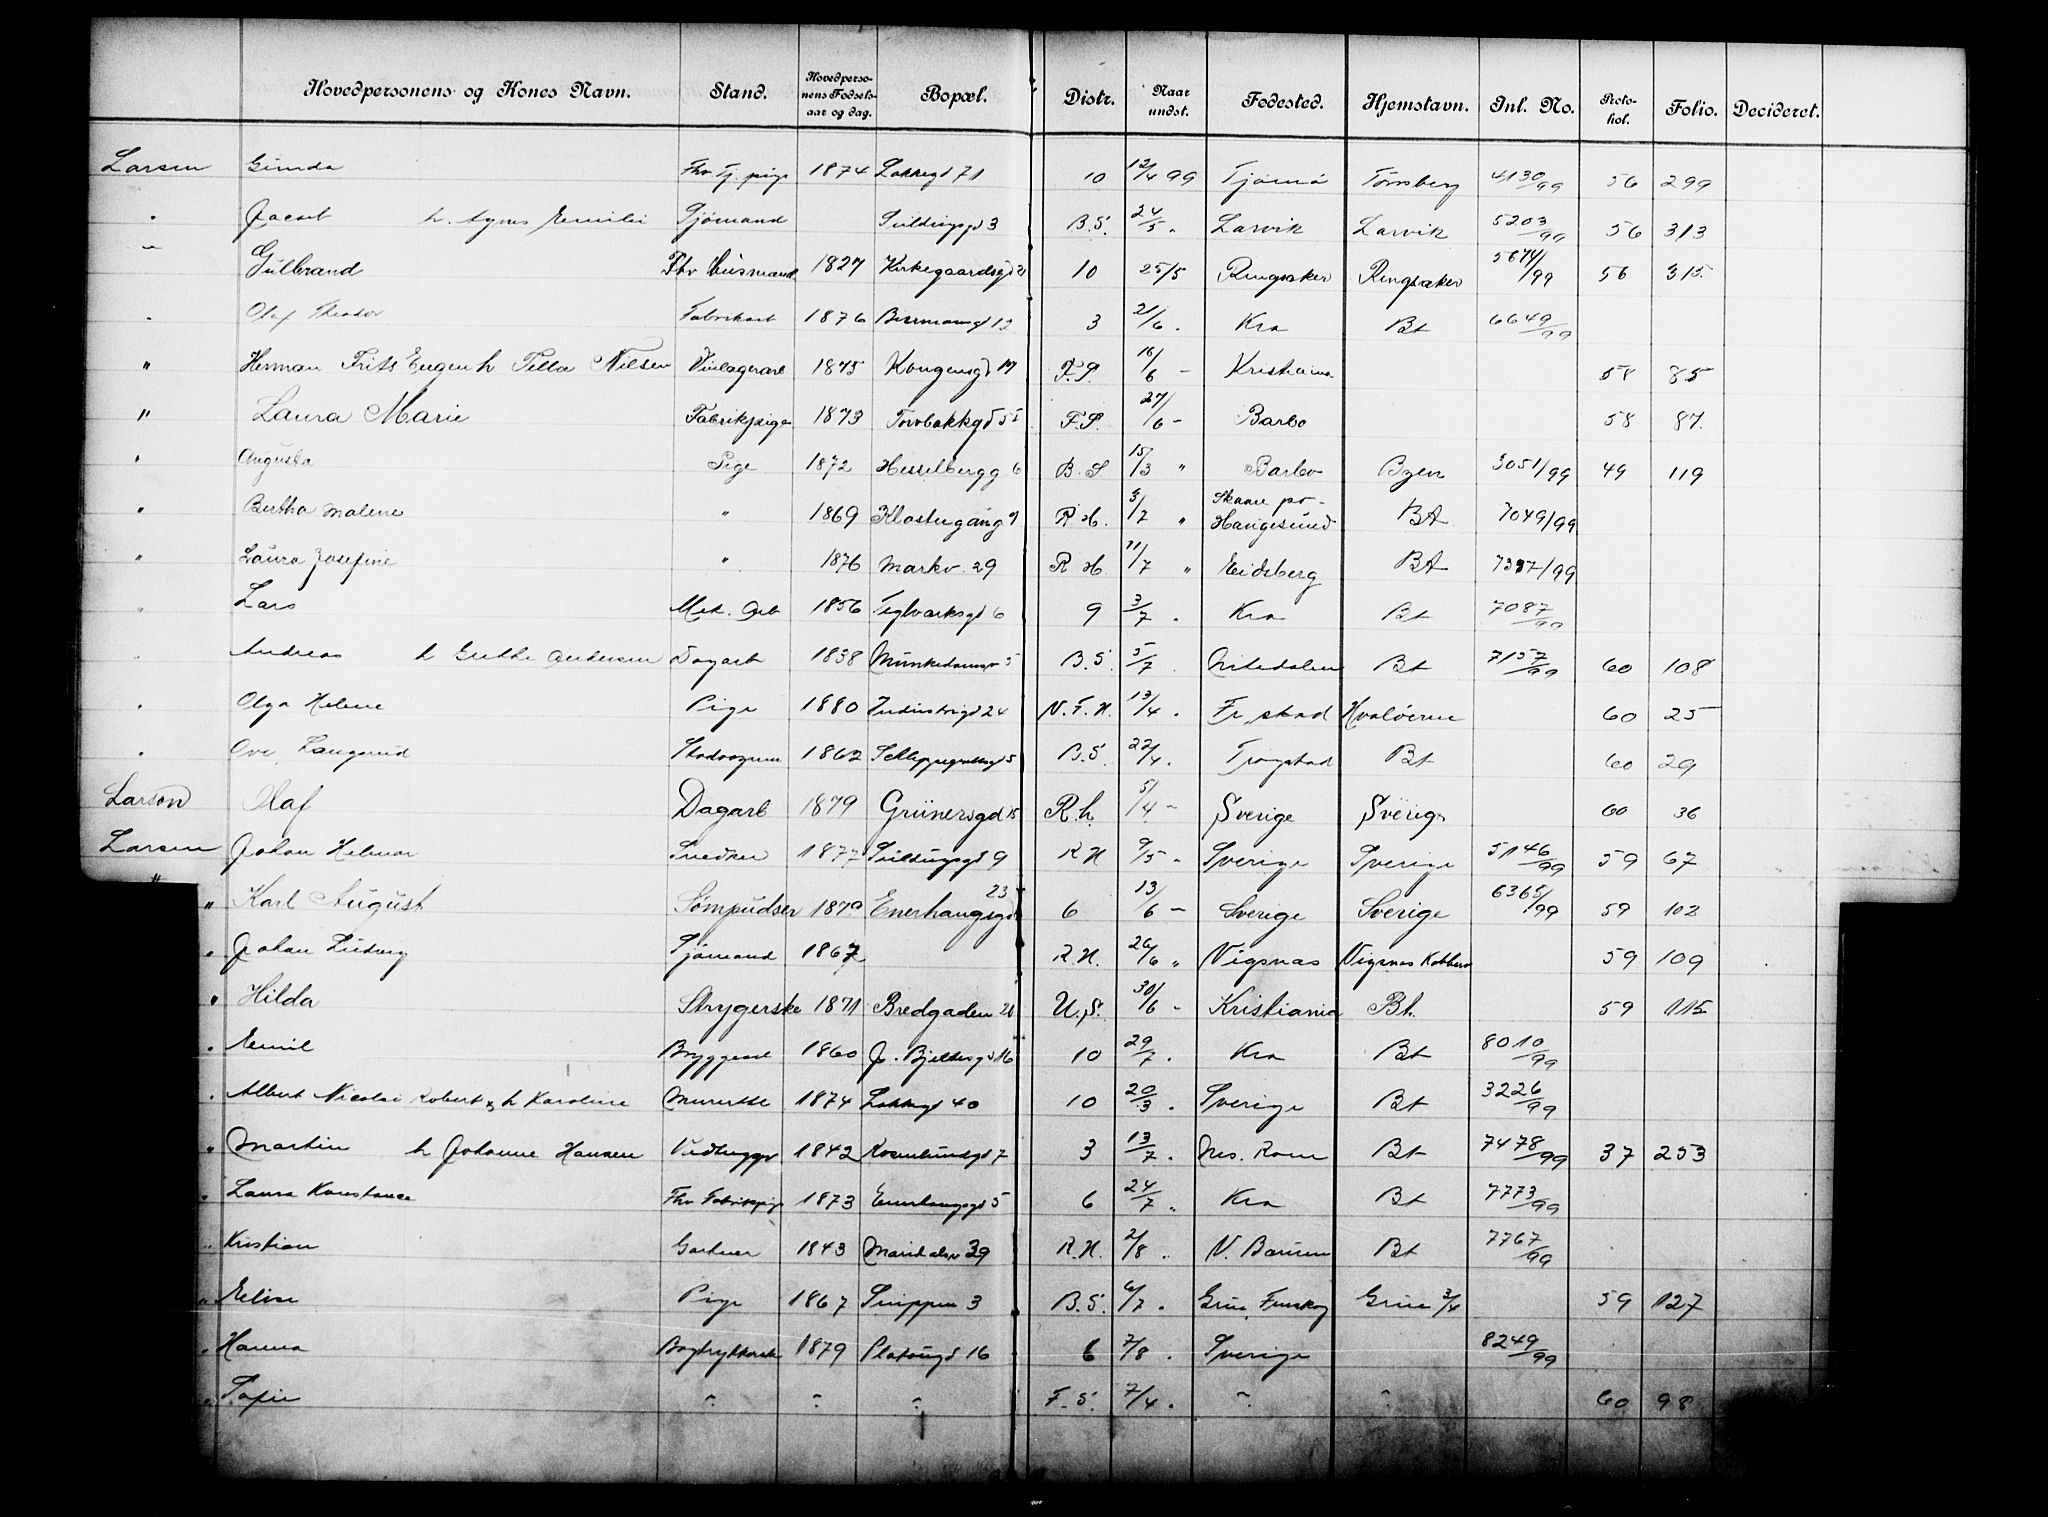 Hovedpersonens og Kones Navn. Stand. Hovedpersonens Fødselsaar og dag. Bopæl. Distr. Naar undst. Fødested. Hjemstavn. Inl. No. Protokol. Folio. Decideret.
Larsen Gunda Fhv. Tj. pige 1874 Lakkegd 71 10 12/4 99 Tjømø Tønsberg 4130/99 56 299
" Jacob h. Agnes Emilie Sjømand Sultingsgd 3 B.S. 24/5 " Larvik Larvik 5203/99 56 313
" Gulbrand Fhv Husmand 1827 Kirkegaardsgd 10 25/5 Ringsaker Ringsaker 5674/99 56 315
" Olaf Theodor Fabrikarb 1876 12 3 21/6 " Kra Bt 6649/99
" Herman Frits Eugen h Pella Nilsen Vinlagerarb 1875 Kongensgd F.S. 16/6 - Kristiania 58 85
" Laura Marie Fabrikpige 1873 Torvbakkgd F.S. 27/6 - Barbo 58 87
" Augusta Pige 1872 Hesselbergg 6 B.S. 15/3 " Barbo Bgen 3051/99 49 119
" Bertha Malene " 1869 Klostergang R H. 3/7 " Skaare pr. Haugesund BA 7049/99
" Laura Josefine " 1876 Markv. 29 R H. 11/7 " Eidsberg BA /99
" Lars Mek. Arb 1856 Teglværksgd 6 9 3/7 " Kra Bt 7087/99
" Andreas h Grethe Andersen Dagarb 1838 Munkedamsv 5 B.S. 5/7 Nitedalen Bt 7157/99 60 108
" Olga Helene Pige 1880 Industrigd 24 N.T.H. 13/4 " Fr.stad Hvaløerne 60 25
" Ove Langerud 1862 Schleppegrellsgd 5 B.S. 22/4 " Trøgstad Bt 60 29
Larson Olaf Dagarb 1879 Grünersgd 15 R.h. 5/4 - Sverige Sverige 60 36
Larsen Johan Helmar Snedker 1877 Sultingsgd 9 R H 9/5 " Sverige Sverige 5146/99 59 67
" Karl August Sømpudser 1879 Enerhaugsgd 23 6 13/6 - Sverige Sverige 6365/99 59 102
" Johan Ludvig Sjømand 1867 R.H. 26/6 " Vigsnas Vigsnas Kobberv 59 109
" Hilda Strygerske 1871 Bredgaden U.S. 30/6 - Kristiania Bt. 59 115
" Emil Bryggearb 1860 J. Bjelkesgd 16 10 29/7 " Kra Bt 8010/99
" Albert Nicolai Robert h Karoline 1874 Lakkegd 40 10 20/3 " Sverige Bt 3226/99
" Martin h Johanne Hansen Vedhugger 1842 Rosenlundgd 7 3 13/7 " Nes. Rom Bt 7478/99 37 253
" Laura Konstance Fhv Fabrikspige 1873 Enerhaugsgd 5 6 24/7 " Kra Bt 7773/99
" Kristian Gartner 1843 Maridalsv 39 R.H. 2/8 " V. Bærum Bt 7767/99
" Elise Pige 1867 Snippen 3 B.S. 6/7 " Grue Finskog Grue 3/4 59 127
" Hanna Bogtrykkersk 1879 Platousgd 16 6 7/8 " Sverige 8249/99
" Sofie " " " F.S. 7/4 " " " 60 98